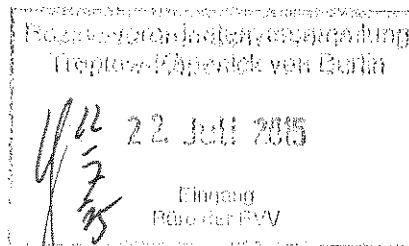 Bezirksverordnetenversammlung
Treptow-Köpenick von Berlin
22. Juli 2015
Eingang
Büro der BVV